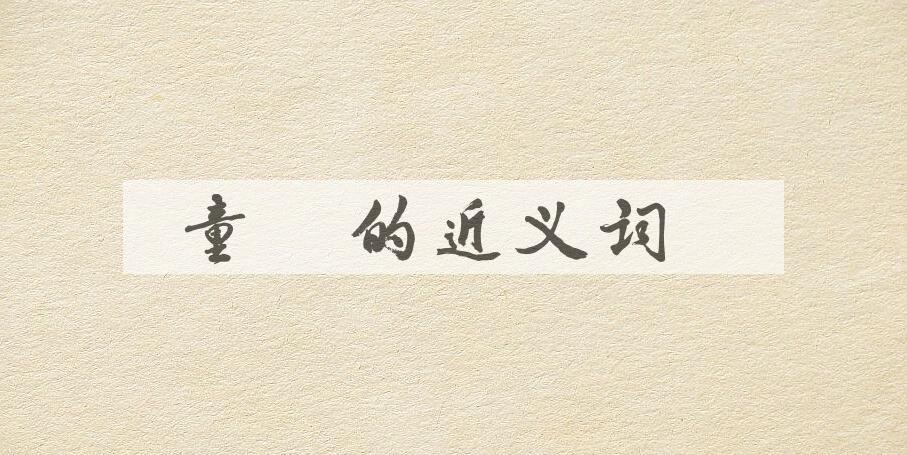 童 的近义词